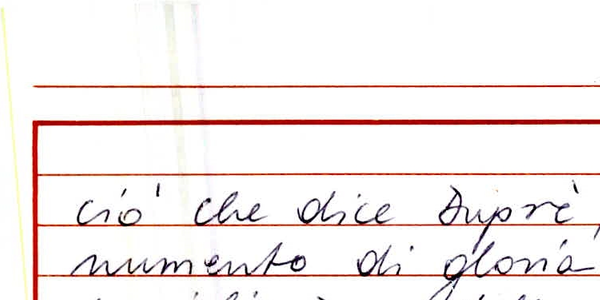 ciò che dice Duprè,
numento di gloria